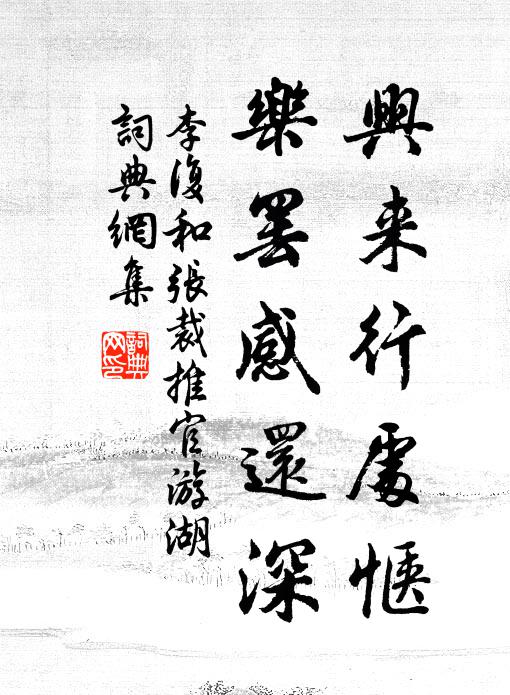 興来行處愜
樂罷感還深
李復和張裁推官游湖
詞典網集
詞典網印